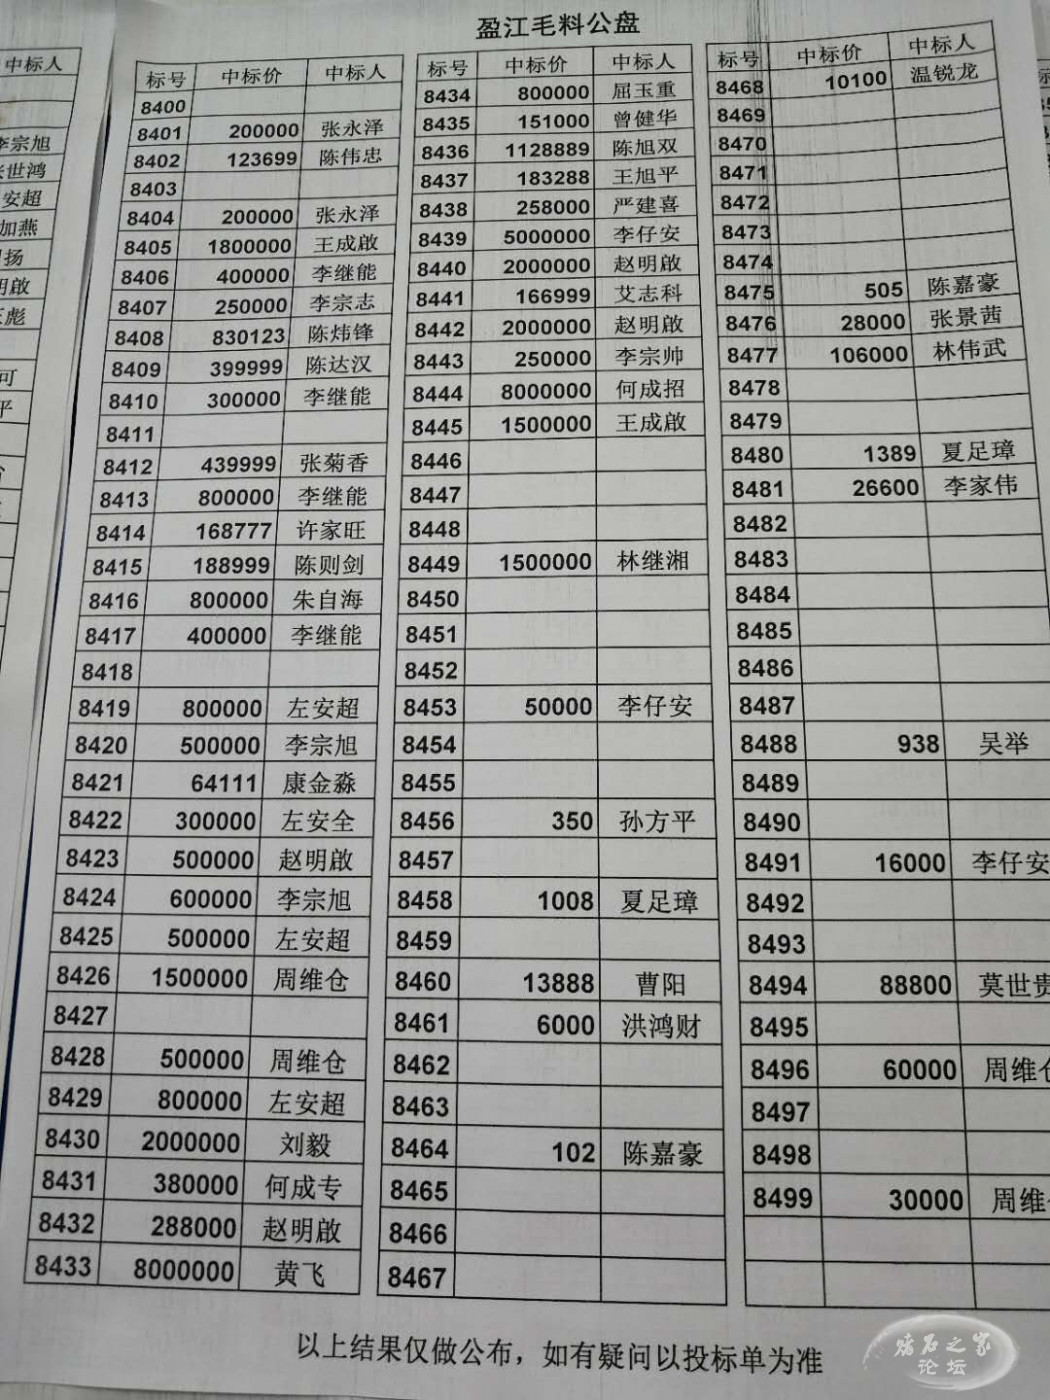 盈江毛料公盘
中标人
李宗旭
张世鸿
安超
加燕
扬
明啟
彪
可
平
标号 中标价 中标人
8400
8401 200000 张永泽
8402 123699 陈伟忠
8403
8404 200000 张永泽
8405 1800000 王成啟
8406 400000 李继能
8407 250000 李宗志
8408 830123 陈炜锋
8409 399999 陈达汉
8410 300000 李继能
8411
8412 439999 张菊香
8413 800000 李继能
8414 168777 许家旺
8415 188999 陈则剑
8416 800000 朱自海
8417 400000 李继能
8418
8419 800000 左安超
8420 500000 李宗旭
8421 64111 康金淼
8422 300000 左安全
8423 500000 赵明啟
8424 600000 李宗旭
8425 500000 左安超
8426 1500000 周维仓
8427
8428 500000 周维仓
8429 800000 左安超
8430 2000000 刘毅
8431 380000 何成专
8432 288000 赵明啟
8433 8000000 黄飞
标号 中标价 中标人
8434 800000 屈玉重
8435 151000 曾健华
8436 1128889 陈旭双
8437 183288 王旭平
8438 258000 严建喜
8439 5000000 李仔安
8440 2000000 赵明啟
8441 166999 艾志科
8442 2000000 赵明啟
8443 250000 李宗帅
8444 8000000 何成招
8445 1500000 王成啟
8446
8447
8448
8449 1500000 林继湘
8450
8451
8452
8453 50000 李仔安
8454
8455
8456 350 孙方平
8457
8458 1008 夏足璋
8459
8460 13888 曹阳
8461 6000 洪鸿财
8462
8463
8464 102 陈嘉豪
8465
8466
8467
标号 中标价 中标人
8468 10100 温锐龙
8469
8470
8471
8472
8473
8474
8475 505 陈嘉豪
8476 28000 张景茜
8477 106000 林伟武
8478
8479
8480 1389 夏足璋
8481 26600 李家伟
8482
8483
8484
8485
8486
8487
8488 938 吴举
8489
8490
8491 16000 李仔安
8492
8493
8494 88800 莫世贵
8495
8496 60000 周维仓
8497
8498
8499 30000 周维
以上结果仅做公布，如有疑问以投标单为准
赌石之家
论坛